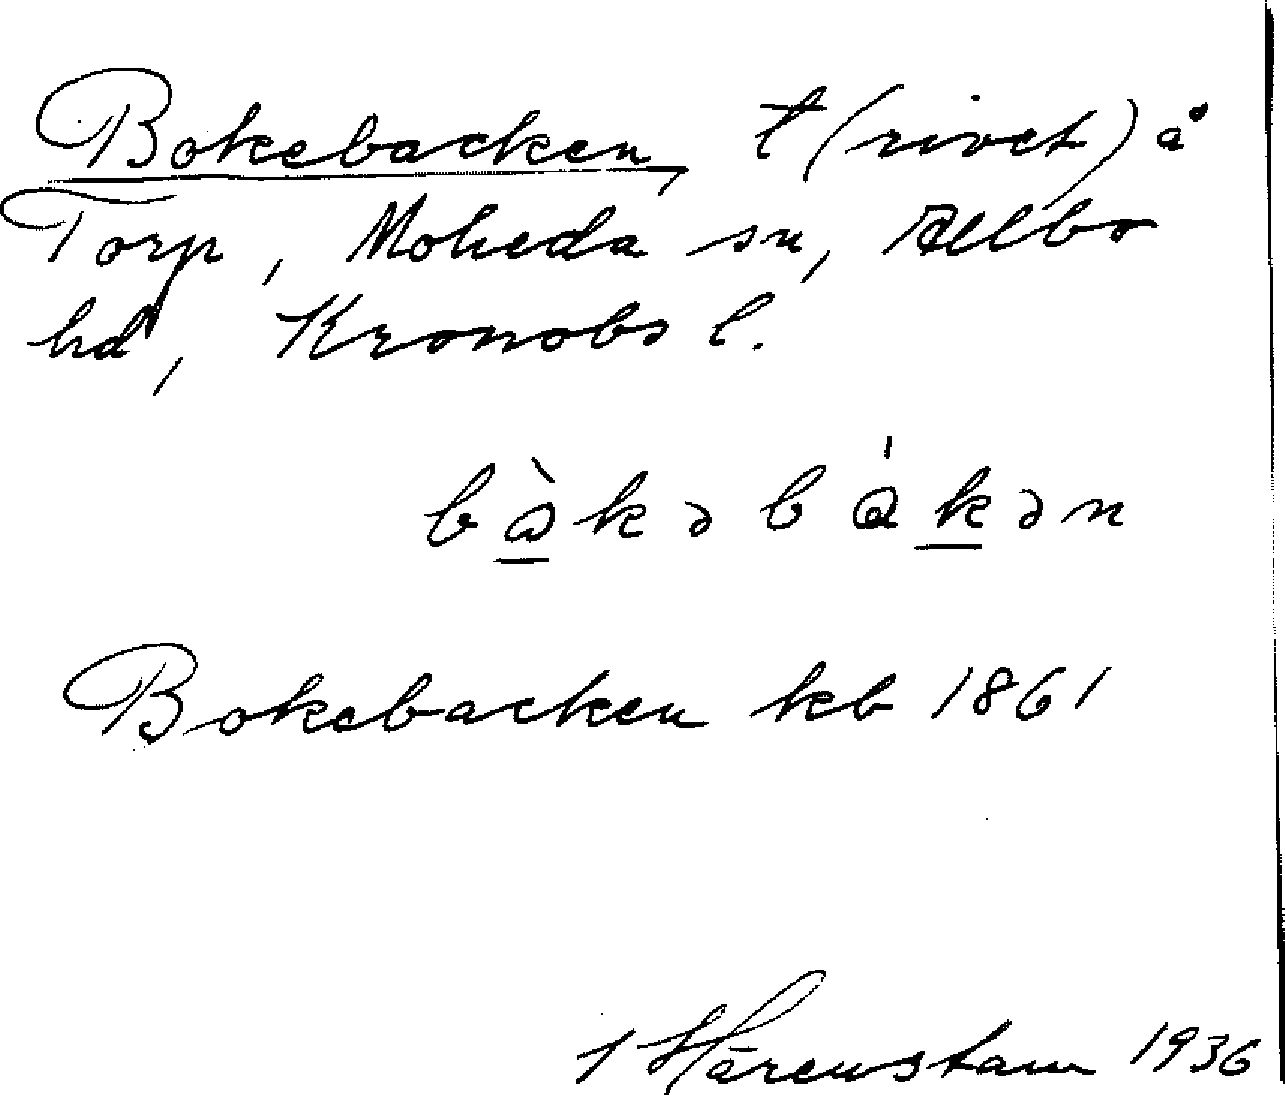 Bokebacken, t (rivet) å
Torp, Moheda sn, Allbo
hd, Kronobs l.
bɷ̀kəbákən
Bokebacken kb 1861
Härenstam 1936